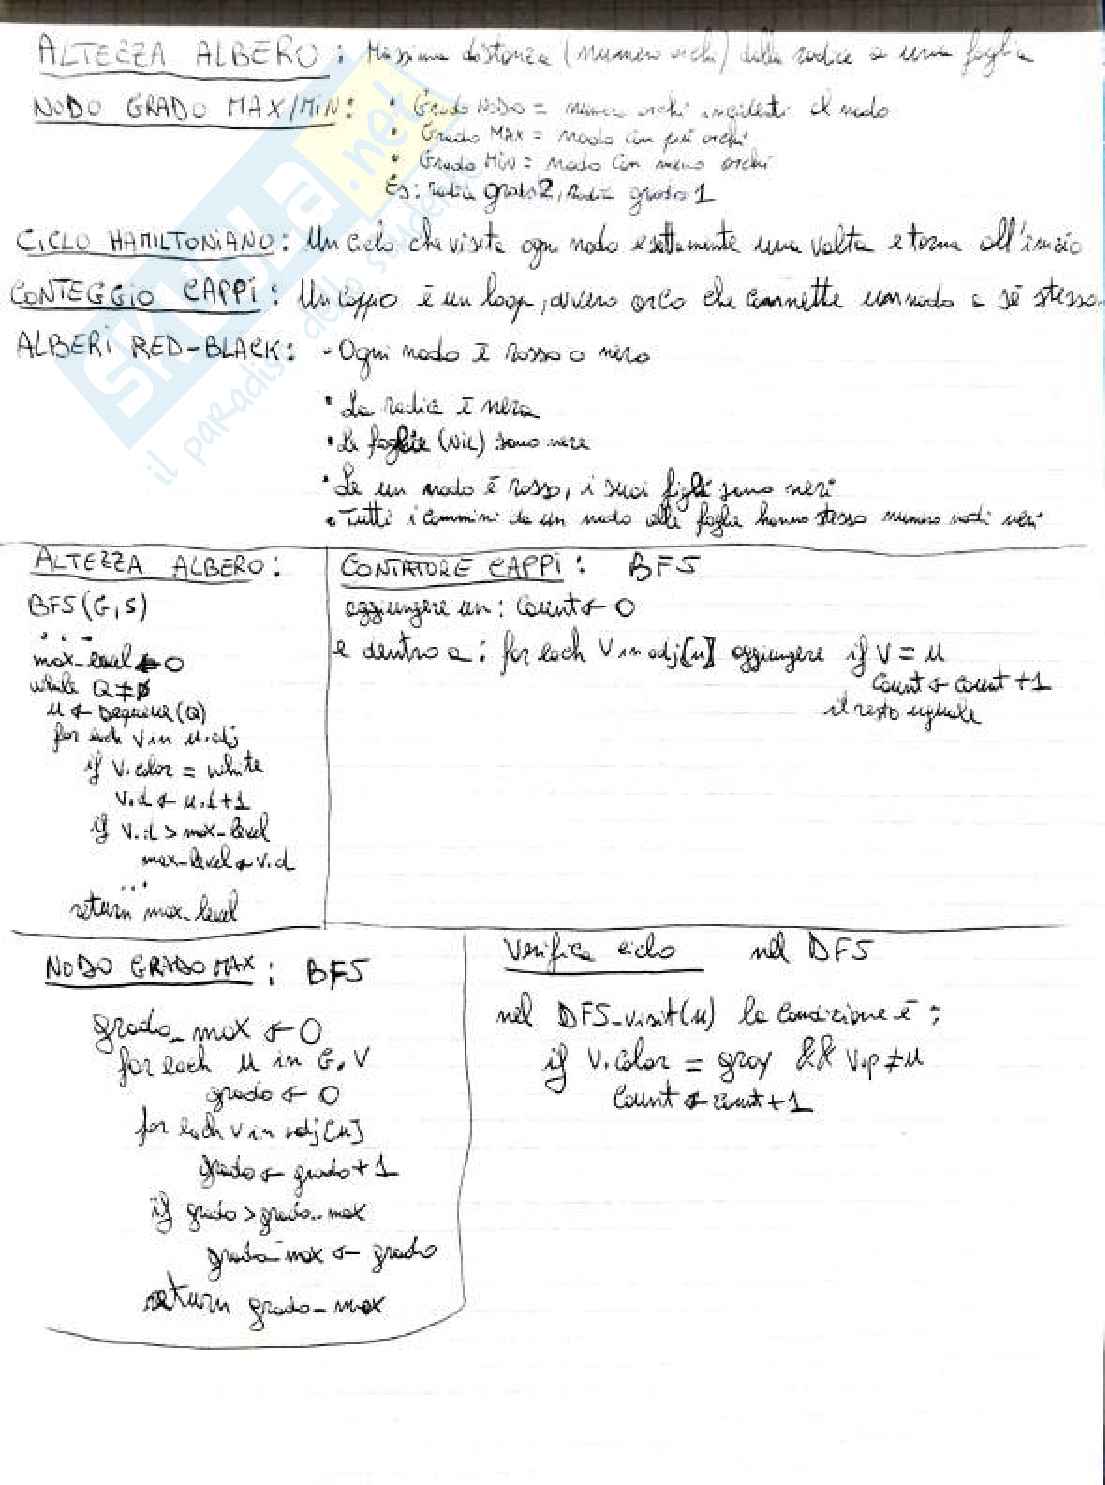 ALTEZZA ALBERO: Massima distanza (numero archi) dalla radice a una foglia
NODO GRADO MAX/MIN: • Grado NODO = numero archi incidenti al nodo
• Grado MAX = nodo con più archi
• Grado Min = nodo con meno archi
Es: radice grado 2, radice grado 1
CICLO HAMILTONIANO: Un ciclo che visita ogni nodo esattamente una volta e torna all'inizio
CONTEGGIO CAPPI: Un cappio è un loop, ovvero arco che connette un nodo a sé stesso.
ALBERI RED-BLACK: - Ogni nodo è rosso o nero
• La radice è nera
• Le foglie (NIL) sono nere
• Se un nodo è rosso, i suoi figli sono neri
• Tutti i cammini da un nodo alle foglie hanno stesso numero nodi neri
ALTEZZA ALBERO:
BFS(G,S)
...
max_level ← 0
while Q ≠ ∅
u ← Dequeue(Q)
for each v in u.adj
if v.color = white
v.d ← u.d+1
if v.d > max-level
max-level ← v.d
...
return max_level
CONTATORE CAPPI: BFS
aggiungere un: count ← 0
e dentro a: for each v in adj[u] aggiungere if v = u
count ← count +1
il resto uguale
NODO GRADO MAX: BFS
grado_max ← 0
for each u in G.V
grado ← 0
for each v in adj[u]
grado ← grado + 1
if grado > grado_max
grado_max ← grado
return grado_max
Verifica ciclo nel DFS
nel DFS_visit(u) la condizione è:
if v.color = gray && v.p ≠ u
count ← count + 1
SKUOLA.net
il paradiso dello studente